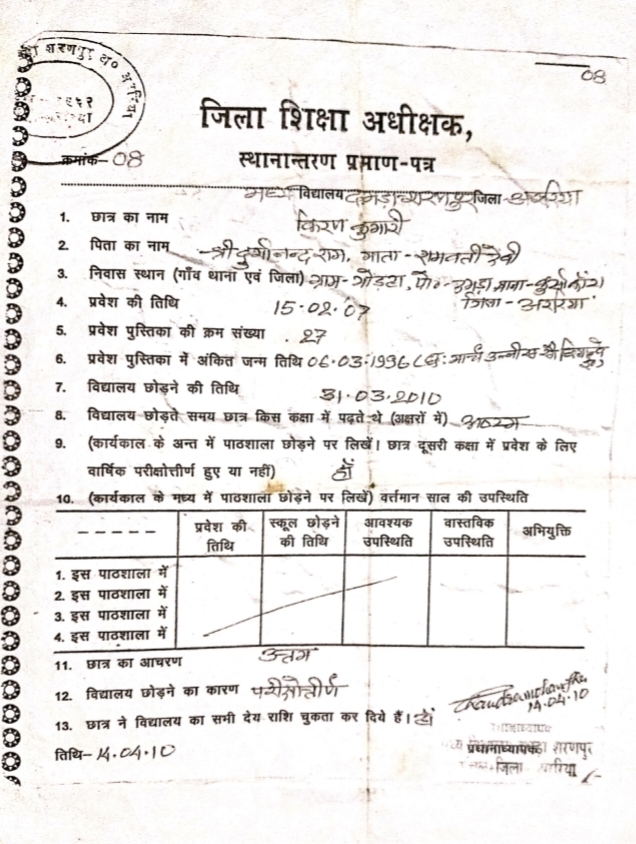 शरणपुर
08
जिला शिक्षा अधीक्षक,
क्रमांक- 08
स्थानान्तरण प्रमाण-पत्र
मध्य विद्यालय शरणपुर जिला- अररिया
1. छात्र का नाम किरण कुमारी
2. पिता का नाम श्री दुर्गानन्द राम, माता - रामवती देवी
3. निवास स्थान (गाँव थाना एवं जिला) ग्राम-
जिला - अररिया
4. प्रवेश की तिथि 15.02.07
5. प्रवेश पुस्तिका की क्रम संख्या 27
6. प्रवेश पुस्तिका में अंकित जन्म तिथि 06.03.1996 (छः मार्च उन्नीस सौ
7. विद्यालय छोड़ने की तिथि 31.03.2010
8. विद्यालय छोड़ते समय छात्र किस कक्षा में पढ़ते थे (अक्षरों में) अष्टम
9. (कार्यकाल के अन्त में पाठशाला छोड़ने पर लिखें। छात्र दूसरी कक्षा में प्रवेश के लिए
वार्षिक परीक्षोत्तीर्ण हुए या नहीं) हाँ
10. (कार्यकाल के मध्य में पाठशाला छोड़ने पर लिखें) वर्त्तमान साल की उपस्थिति
------ प्रवेश की स्कूल छोड़ने आवश्यक वास्तविक अभियुक्ति
तिथि की तिथि उपस्थिति उपस्थिति
1. इस पाठशाला में
2. इस पाठशाला में
3. इस पाठशाला में
4. इस पाठशाला में
11. छात्र का आचरण उत्तम
12. विद्यालय छोड़ने का कारण परीक्षोत्तीर्ण
14.04.10
13. छात्र ने विद्यालय का सभी देय राशि चुकता कर दिये हैं। हाँ
तिथि- 14.04.10
प्रधानाध्यापक
शरणपुर
जिला